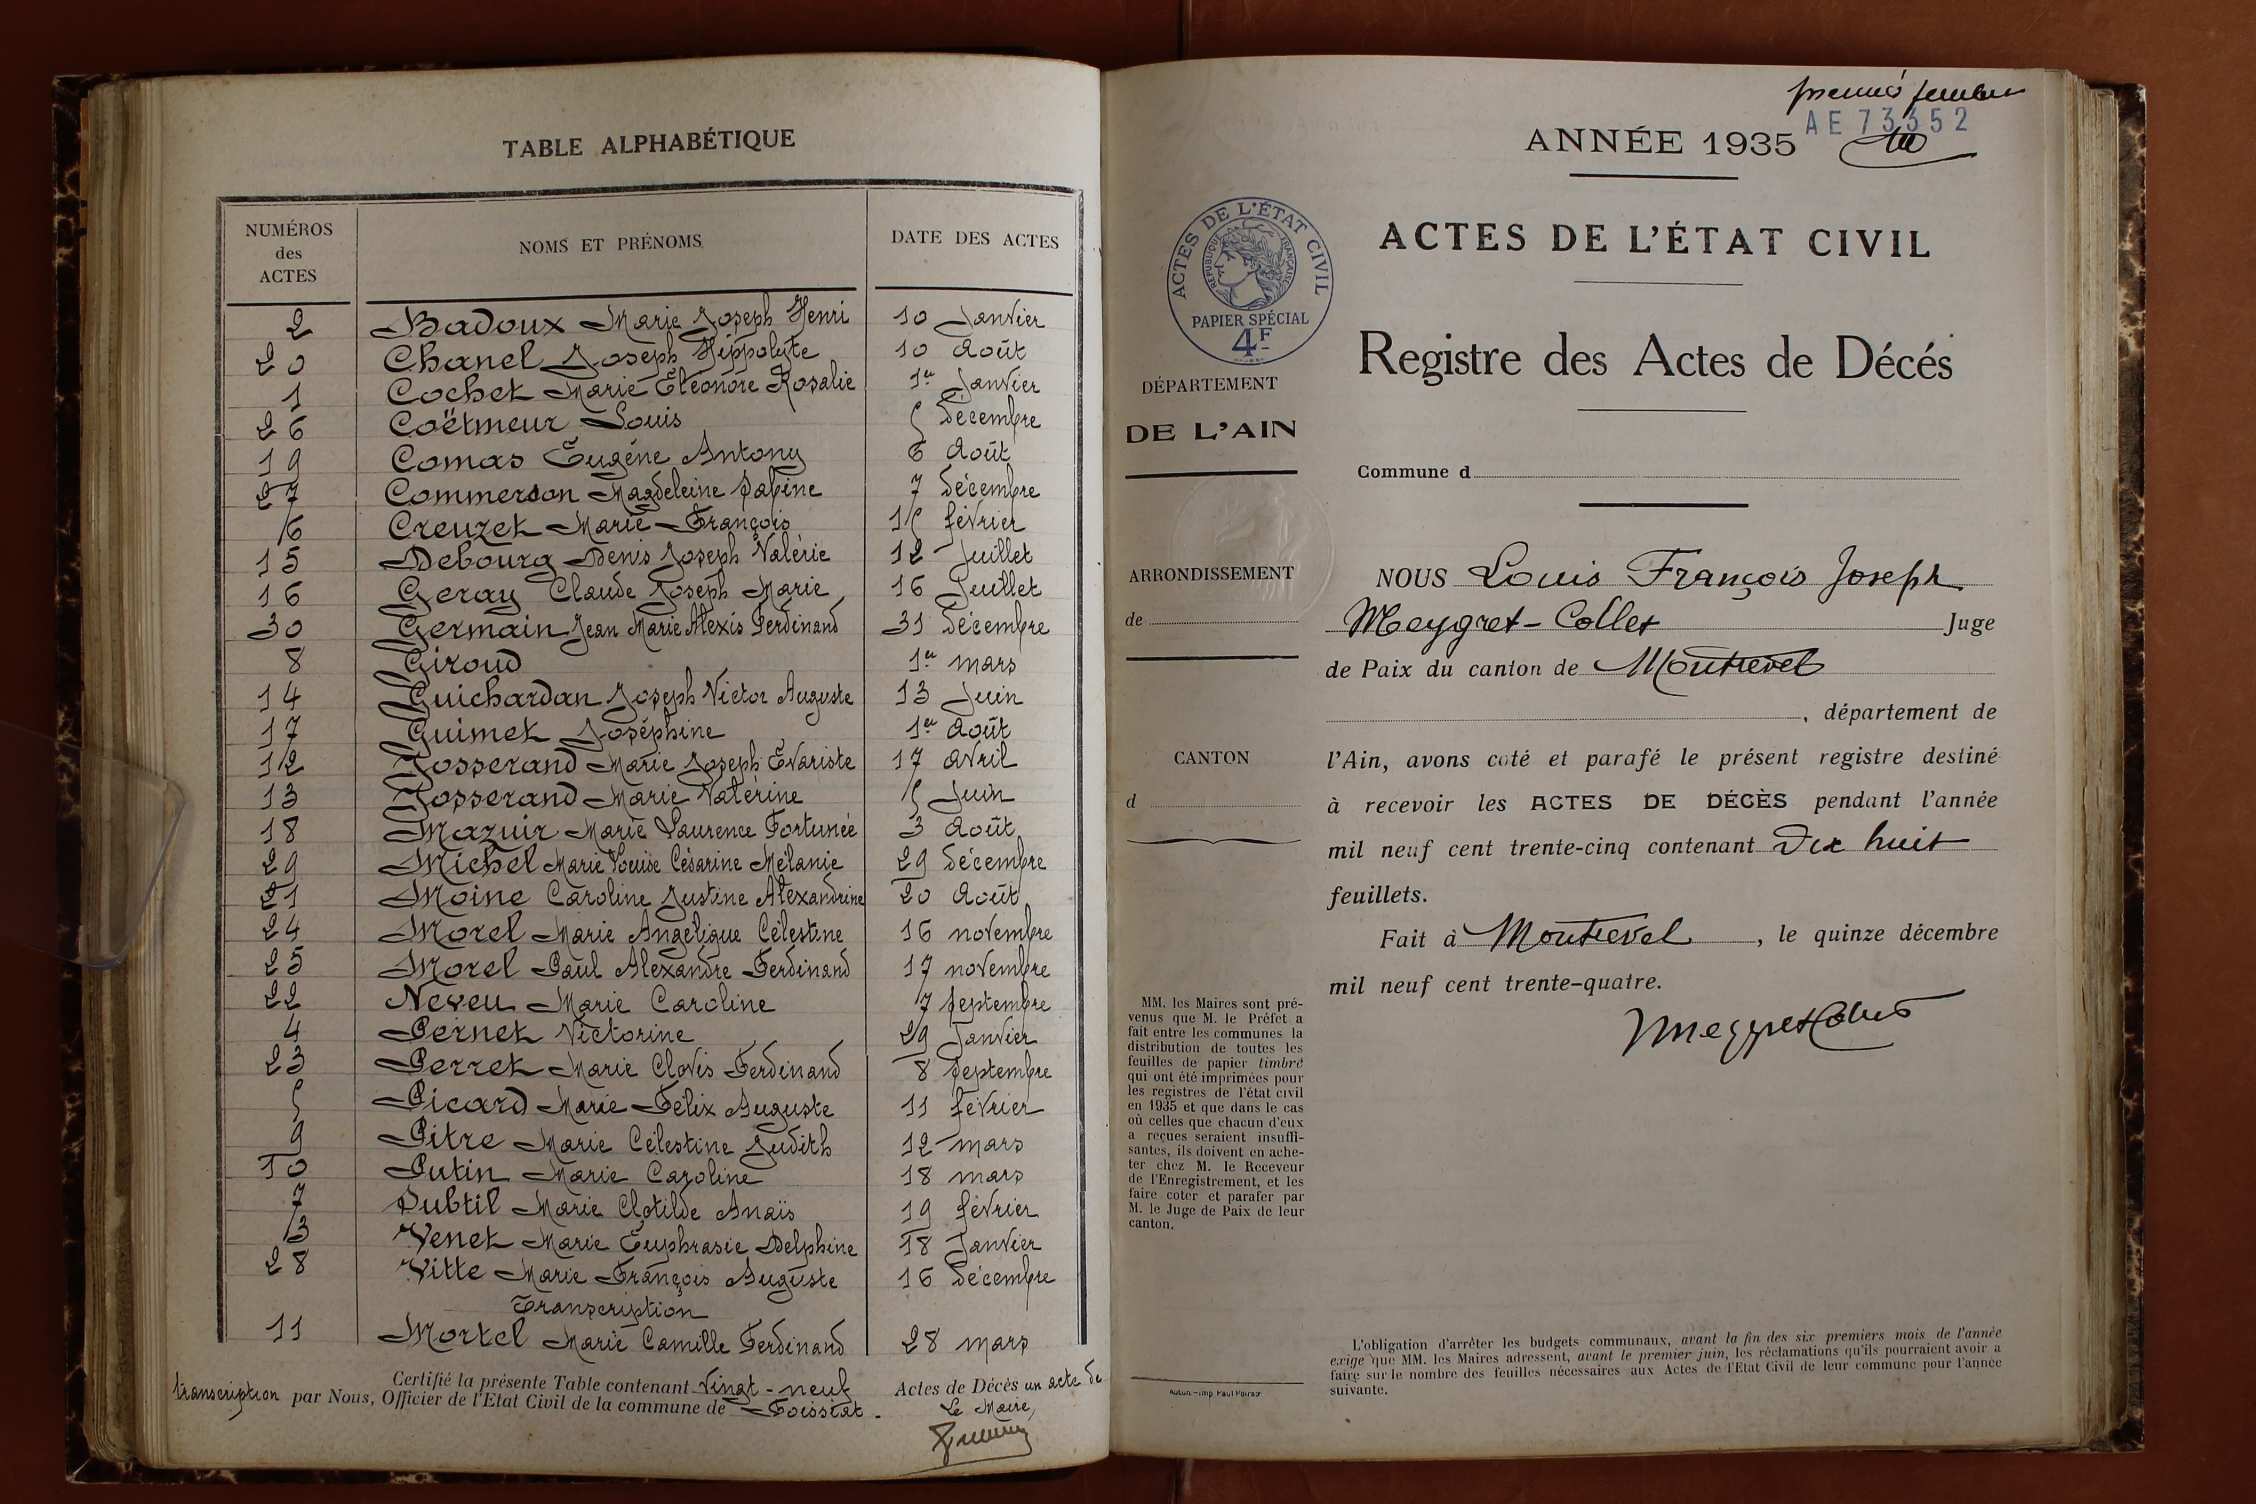 TABLE ALPHABÉTIQUE
NUMÉROS des ACTES | NOMS ET PRÉNOMS | DATE DES ACTES
2 Badoux Marie Joseph Henri 10 Janvier
20 Chanel Joseph Hippolyte 10 Août
1 Cochet Marie Eléonore Rosalie 1er Janvier
26 Coëtmeur Louis 5 décembre
19 Comas Eugène Antony 6 Août
27 Commerson Magdeleine Sabine 7 décembre
6 Creuzet Marie François 15 février
15 Debourg Denis Joseph Valérie 12 Juillet
16 Geray Claude Joseph Marie 16 Juillet
30 Germain Jean Marie Alexis Ferdinand 31 décembre
8 Giroud 1er mars
14 Guichardan Joseph Victor Auguste 13 Juin
17 Guimet Joséphine 1er Août
12 Josserand Marie Joseph Evariste 17 avril
13 Josserand Marie Valérine 5 Juin
18 Mazuir Marie Laurence Fortunée 3 Août
29 Michel Marie Louise Césarine Mélanie 29 décembre
21 Moine Caroline Justine Alexandrine 20 Août
24 Morel Marie Angélique Célestine 16 novembre
25 Morel Paul Alexandre Ferdinand 17 novembre
22 Neveu Marie Caroline 7 septembre
4 Pernet Victorine 29 Janvier
23 Perret Marie Clovis Ferdinand 8 septembre
5 Picard Marie Félix Auguste 11 février
9 Pitre Marie Célestine Judith 12 mars
10 Putin Marie Caroline 18 mars
7 Subtil Marie Clotilde Anaïs 19 février
3 Venet Marie Euphrasie Delphine 18 Janvier
28 Vitte Marie François Auguste 16 décembre
Transcription
11 Mortel Marie Camille Ferdinand 28 mars
Certifié la présente Table contenant Vingt-neuf Actes de Décès un acte de
transcription par Nous, Officier de l'Etat Civil de la commune de Foissiat.
Le Maire,
premier feuillet
AE 73352
ANNÉE 1935
ACTES DE L'ÉTAT CIVIL
RÉPUBLIQUE FRANÇAISE
PAPIER SPÉCIAL
4F
ACTES DE L'ÉTAT CIVIL
Registre des Actes de Décés
DÉPARTEMENT
DE L'AIN
Commune d
ARRONDISSEMENT
de
CANTON
d
NOUS Louis François Joseph
Meygret-Collet Juge
de Paix du canton de Montrevel
, département de
l'Ain, avons coté et parafé le présent registre destiné
à recevoir les ACTES DE DÉCÈS pendant l'année
mil neuf cent trente-cinq contenant Dix huit
feuillets.
Fait à Montrevel, le quinze décembre
mil neuf cent trente-quatre.
MM. les Maires sont pré-
venus que M. le Préfet a
fait entre les communes la
distribution de toutes les
feuilles de papier timbré
qui ont été imprimées pour
les registres de l'état civil
en 1935 et que dans le cas
où celles que chacun d'eux
a reçues seraient insuffi-
santes, ils doivent en ache-
ter chez M. le Receveur
de l'Enregistrement, et les
faire coter et parafer par
M. le Juge de Paix de leur
canton.
Autun - Imp. Paul Poirson
L'obligation d'arrêter les budgets communaux, avant la fin des six premiers mois de l'année
exige que MM. les Maires adressent, avant le premier juin, les réclamations qu'ils pourraient avoir à
faire sur le nombre des feuilles nécessaires aux Actes de l'Etat Civil de leur commune pour l'année
suivante.